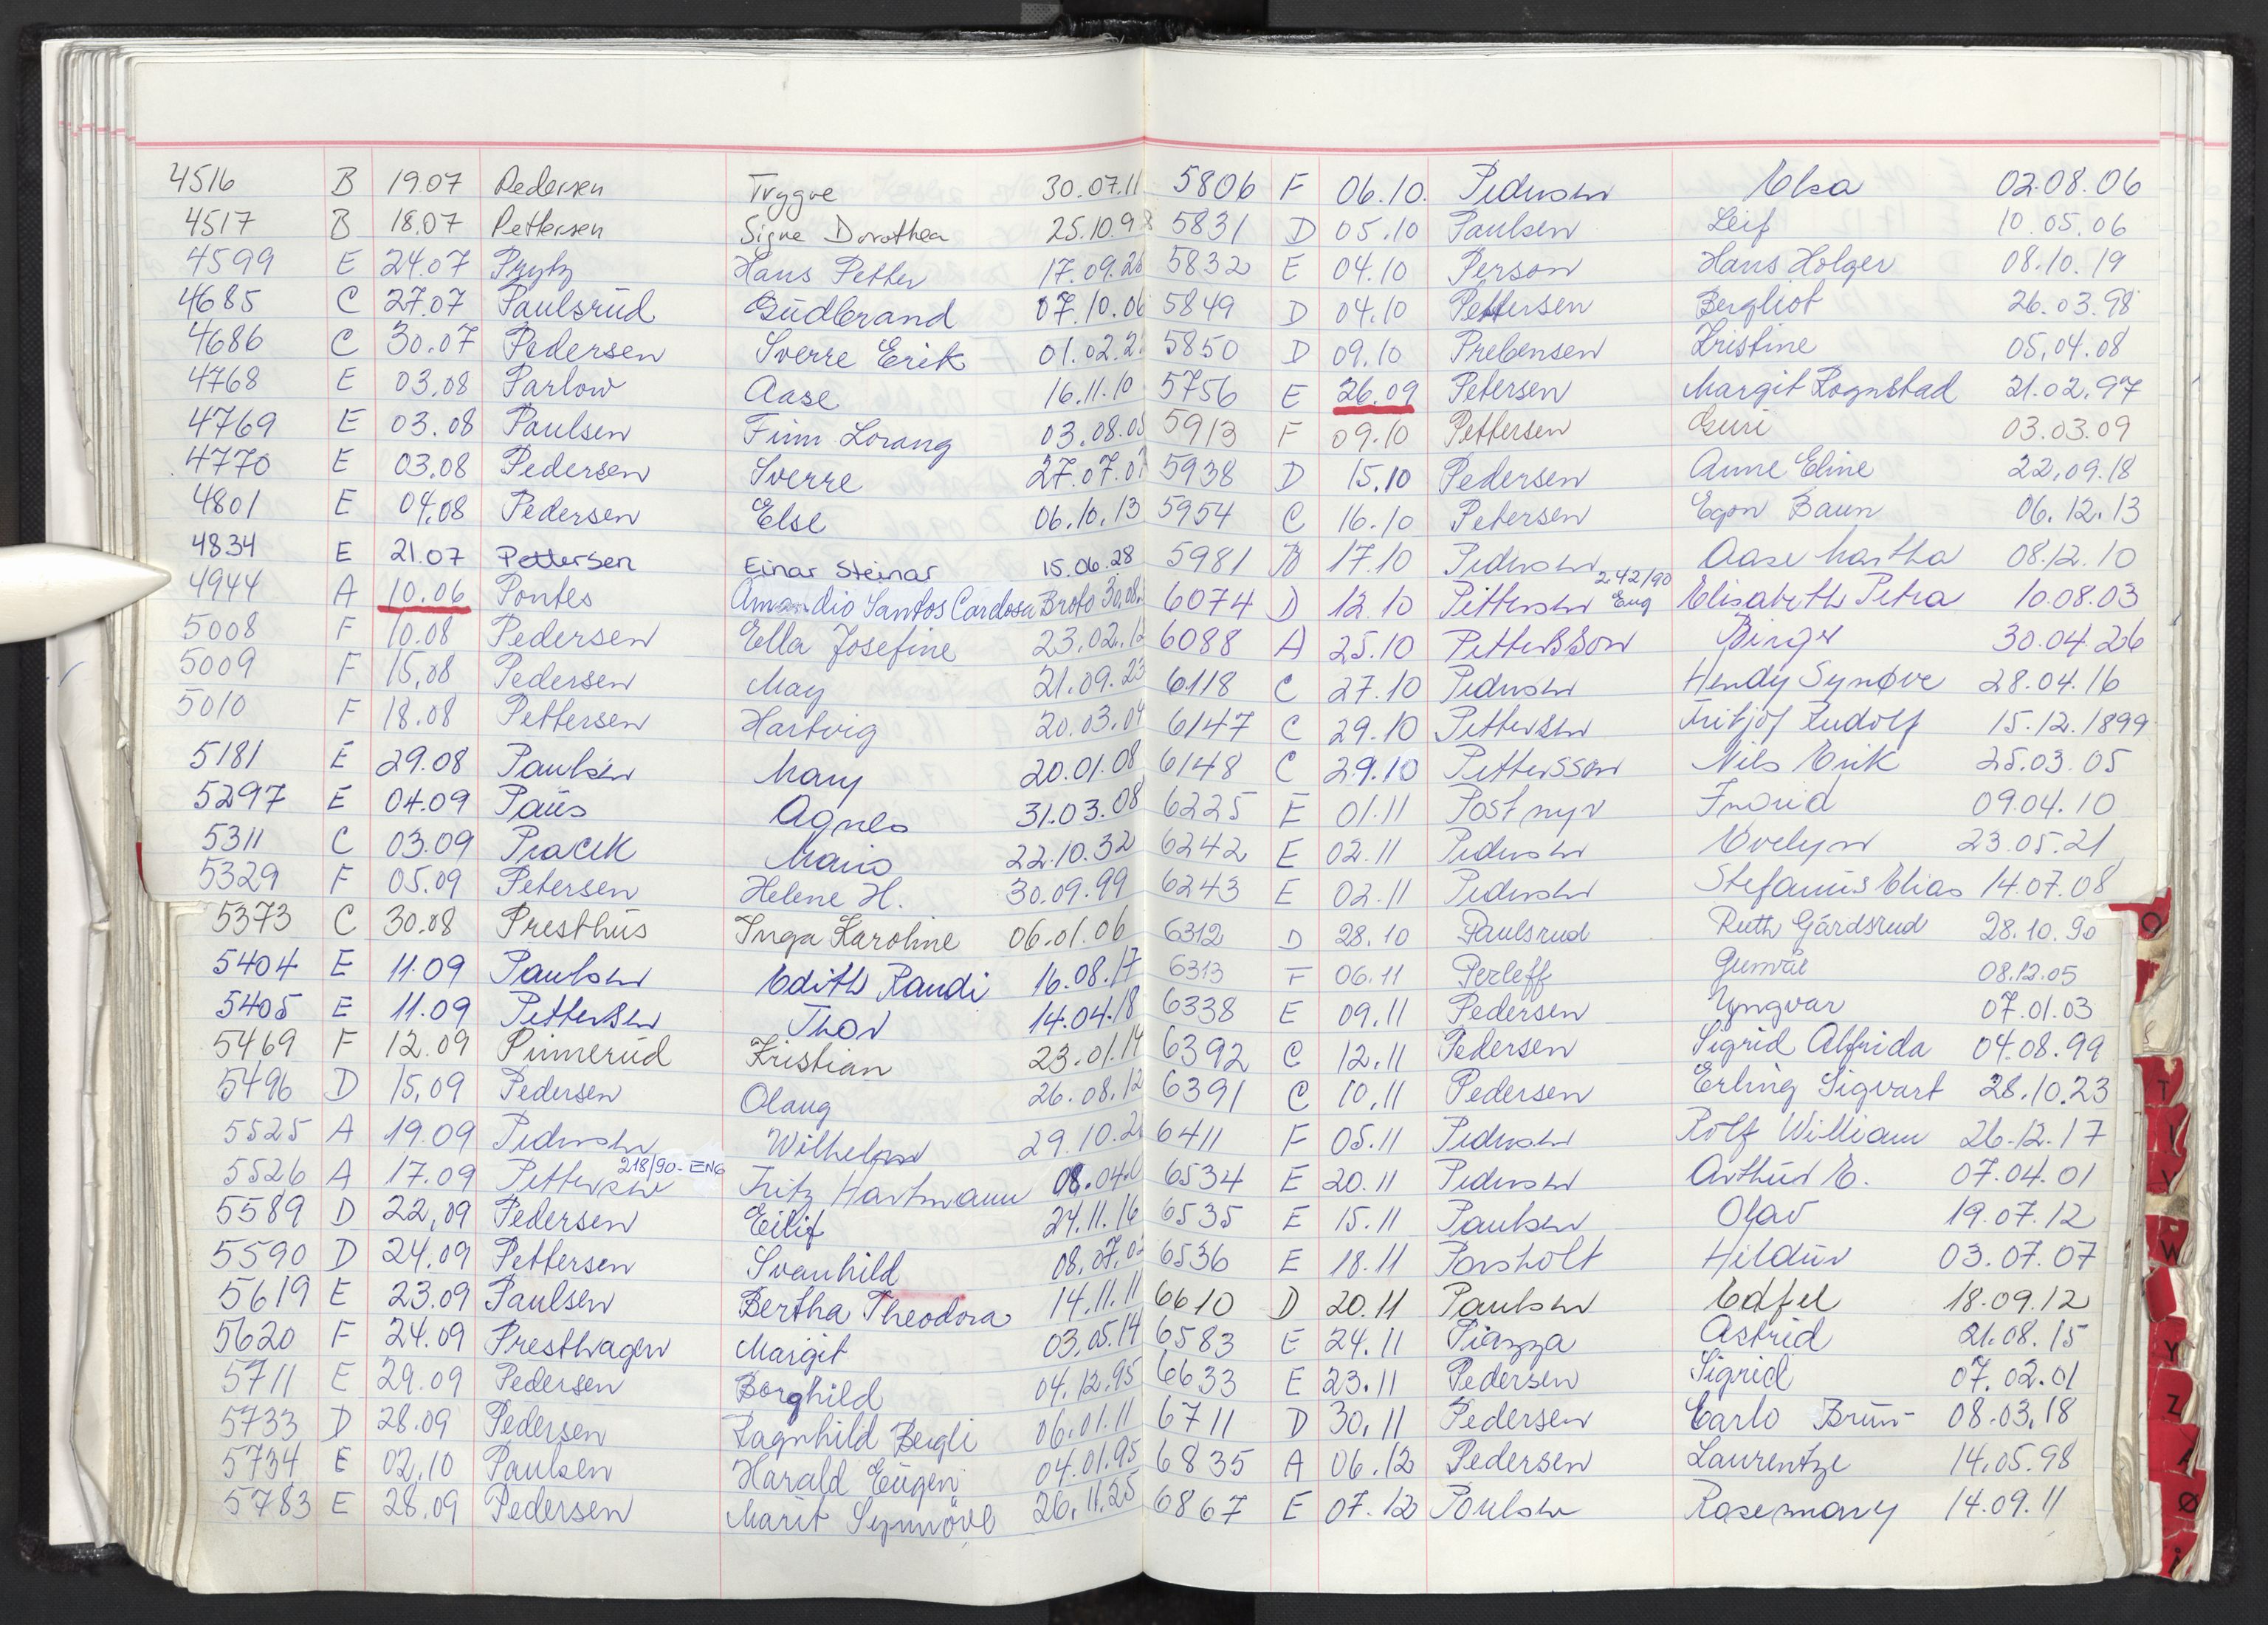 4516 B 19.07 Pedersen Trygve 30.07.11
4517 B 18.07 Pettersen Signe Dorothea 25.10.98
4599 E 24.07 Prytz Hans Petter 17.09.26
4685 C 27.07 Paulsrud Gudbrand 07.10.06
4686 C 30.07 Pedersen Sverre Erik 01.02.2
4768 E 03.08 Parlow Aase 16.11.10
4769 E 03.08 Paulsen Finn Lorang 03.08.08
4770 E 03.08 Pedersen Sverre 27.07.07
4801 E 04.08 Pedersen Else 06.10.13
4834 E 21.07 Pettersen Einar Steinar 15.06.28
4944 A 10.06 Pontes Amandio Santos Cardosa Broto 30.08.
5008 F 10.08 Pedersen Ella Josefine 23.02.12
5009 F 15.08 Pedersen May 21.09.23
5010 F 18.08 Pettersen Hartvig 20.03.04
5181 E 29.08 Paulsen Mary 20.01.08
5297 E 04.09 Paus Agnes 31.03.08
5311 C 03.09 Pracek Mario 22.10.32
5329 F 05.09 Petersen Helene H. 30.09.99
5373 C 30.08 Presthus Inga Karoline 06.01.06
5404 E 11.09 Paulsen Edith Randi 16.08.17
5405 E 11.09 Pettersen Thor 14.04.18
5469 F 12.09 Pinnerud Kristian 23.01.14
5496 D 15.09 Pedersen Olaug 26.08.12
5525 A 19.09 Pedersen Wilhelm 29.10.2
5526 A 17.09 Pettersen 218/90-ENG Fritz Hartmann 08.04.
5589 D 22.09 Pedersen Eilif 24.11.16
5590 D 24.09 Pettersen Svanhild 08.07.02
5619 E 23.09 Paulsen Bertha Theodora 14.11.11
5620 F 24.09 Presthagen Margit 03.05.14
5711 E 29.09 Pedersen Borghild 04.12.95
5733 D 28.09 Pedersen Ragnhild Bergli 06.01.11
5734 E 02.10 Paulsen Harald Eugen 04.01.95
5783 E 28.09 Pedersen Marit Synnøve 26.11.25
5806 F 06.10. Pedersen Elsa 02.08.06
5831 D 05.10 Paulsen Leif 10.05.06
5832 E 04.10 Person Hans Holger 08.10.19
5849 D 04.10 Pettersen Bergliot 26.03.98
5850 D 09.10 Prebensen Kristine 05.04.08
5756 E 26.09 Petersen Margit Rognstad 21.02.97
5913 F 09.10 Pettersen Guri 03.03.09
5938 D 15.10 Pedersen Anne Eline 22.09.18
5954 C 16.10 Petersen Egon Baun 06.12.13
5981 B 17.10 Pedersen Aase Martha 08.12.10
6074 D 12.10 Pettersen 242/90 Eng Elisabeth Petra 10.08.03
6088 A 25.10 Pettersson Birger 30.04.26
6118 C 27.10 Pedersen Hendy Synøve 28.04.16
6147 C 29.10 Pettersen Fritjof Rudolf 15.12.1899
6148 C 29.10 Pettersson Nils Erik 25.03.05
6225 E 01.11 Postmyr Ingrid 09.04.10
6242 E 02.11 Pedersen Evelyn 23.05.21
6243 E 02.11 Pedersen Stefanus Elias 14.07.08
6312 D 28.10 Paulsrud Ruth Gårdsrud 28.10.90
6313 F 06.11 Perleff Gunvor 08.12.05
6338 E 09.11 Pedersen Yngvar 07.01.03
6392 C 12.11 Pedersen Sigrid Alfrida 04.08.99
6391 C 10.11 Pedersen Erling Sigvart 28.10.23
6411 F 05.11 Pedersen Rolf William 26.12.17
6534 E 20.11 Pedersen Arthur E. 07.04.01
6535 E 15.11 Paulsen Olav 19.07.12
6536 E 18.11 Porsholt Hildur 03.07.07
6610 D 20.11 Paulsen Edfel 18.09.12
6583 E 24.11 Piazza Astrid 21.08.15
6633 E 23.11 Pedersen Sigrid 07.02.01
6711 D 30.11 Pedersen Carlo Brun 08.03.18
6835 A 06.12 Pedersen Laurentze 14.05.98
6867 E 07.12 Poulsen Rosemary 14.09.11
O
T
V
W
Y
Z
Ø